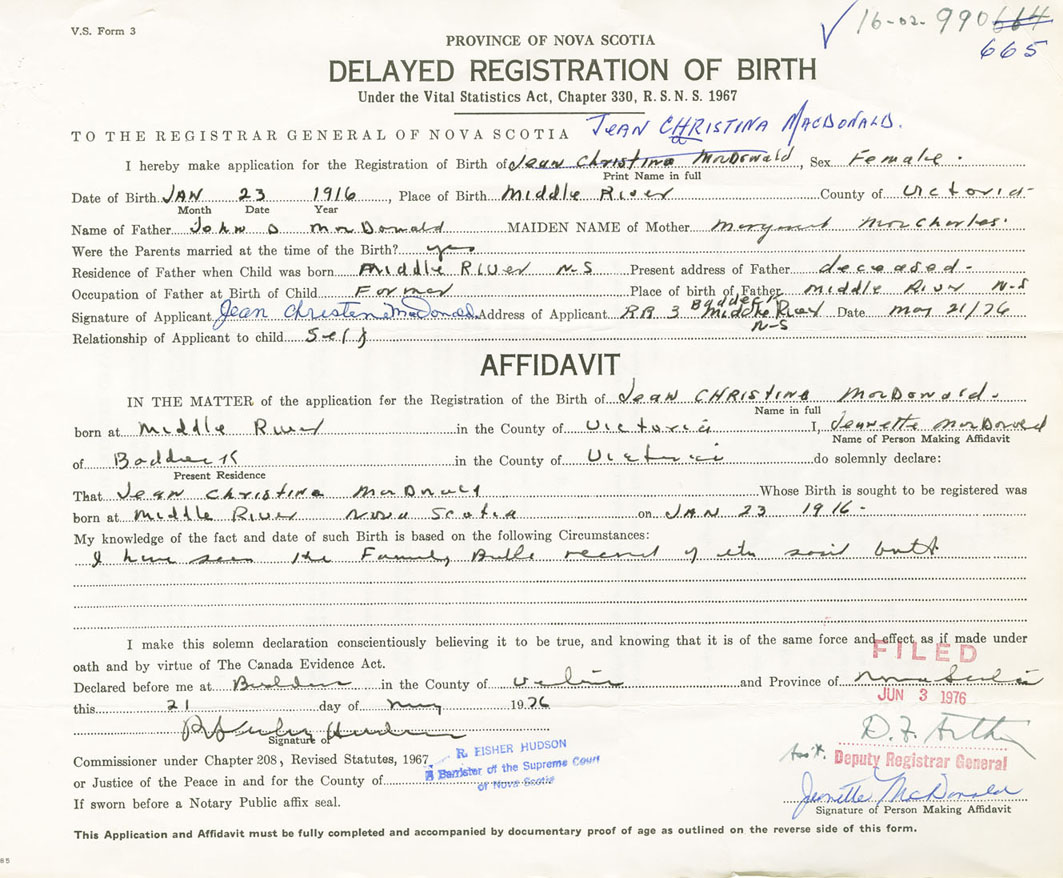 V.S. Form 3
16-02-990664
665
PROVINCE OF NOVA SCOTIA
DELAYED REGISTRATION OF BIRTH
Under the Vital Statistics Act, Chapter 330, R.S.N.S. 1967
TO THE REGISTRAR GENERAL OF NOVA SCOTIA JEAN CHRISTINA MACDONALD.
I hereby make application for the Registration of Birth of Jean Christina MacDonald, Sex Female.
Print Name in full
Date of Birth JAN 23 1916, Place of Birth Middle River County of Victoria
Month Date Year
Name of Father John D MacDonald MAIDEN NAME of Mother Margaret MacCharles.
Were the Parents married at the time of the Birth? yes
Residence of Father when Child was born Middle River N-S Present address of Father deceased-
Occupation of Father at Birth of Child Farmer Place of birth of Father Middle River N-S
Signature of Applicant Jean Christena MacDonald Address of Applicant RR 3 Baddeck Middle River N-S Date May 21/76
Relationship of Applicant to child Self
AFFIDAVIT
IN THE MATTER of the application for the Registration of the Birth of Jean CHRISTINA MacDonald.
Name in full
born at Middle River in the County of Victoria I, Jeanette MacDonald
Name of Person Making Affidavit
of Baddeck in the County of Victoria do solemnly declare:
Present Residence
That Jean Christina MacDonald Whose Birth is sought to be registered was
born at Middle River Nova Scotia on JAN 23 1916-
My knowledge of the fact and date of such Birth is based on the following Circumstances:
I have seen the Family Bible record of the said birth
I make this solemn declaration conscientiously believing it to be true, and knowing that it is of the same force and effect as if made under
oath and by virtue of The Canada Evidence Act.
FILED
Declared before me at Baddeck in the County of Victoria and Province of Nova Scotia
JUN 3 1976
this 21 day of May 1976
Signature of
D. F. Arthur
Commissioner under Chapter 208, Revised Statutes, 1967
R. FISHER HUDSON
Ass't. Deputy Registrar General
A Barrister of the Supreme Court
or Justice of the Peace in and for the County of
of Nova Scotia
Jeanette MacDonald
If sworn before a Notary Public affix seal.
Signature of Person Making Affidavit
This Application and Affidavit must be fully completed and accompanied by documentary proof of age as outlined on the reverse side of this form.
85